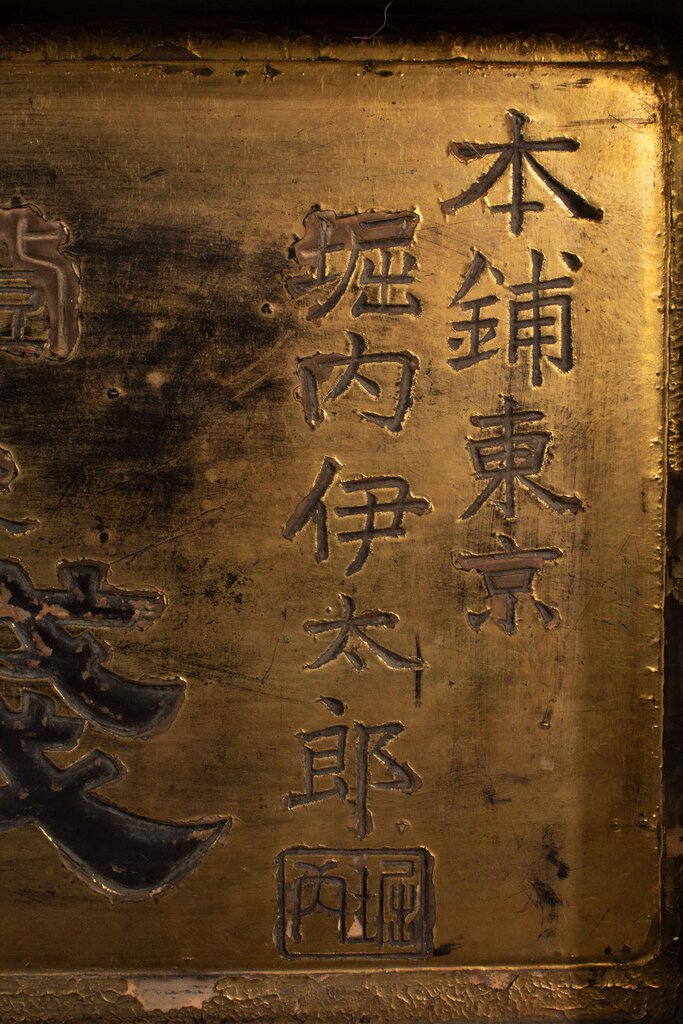 本鋪東京
堀内伊太郎
堀内